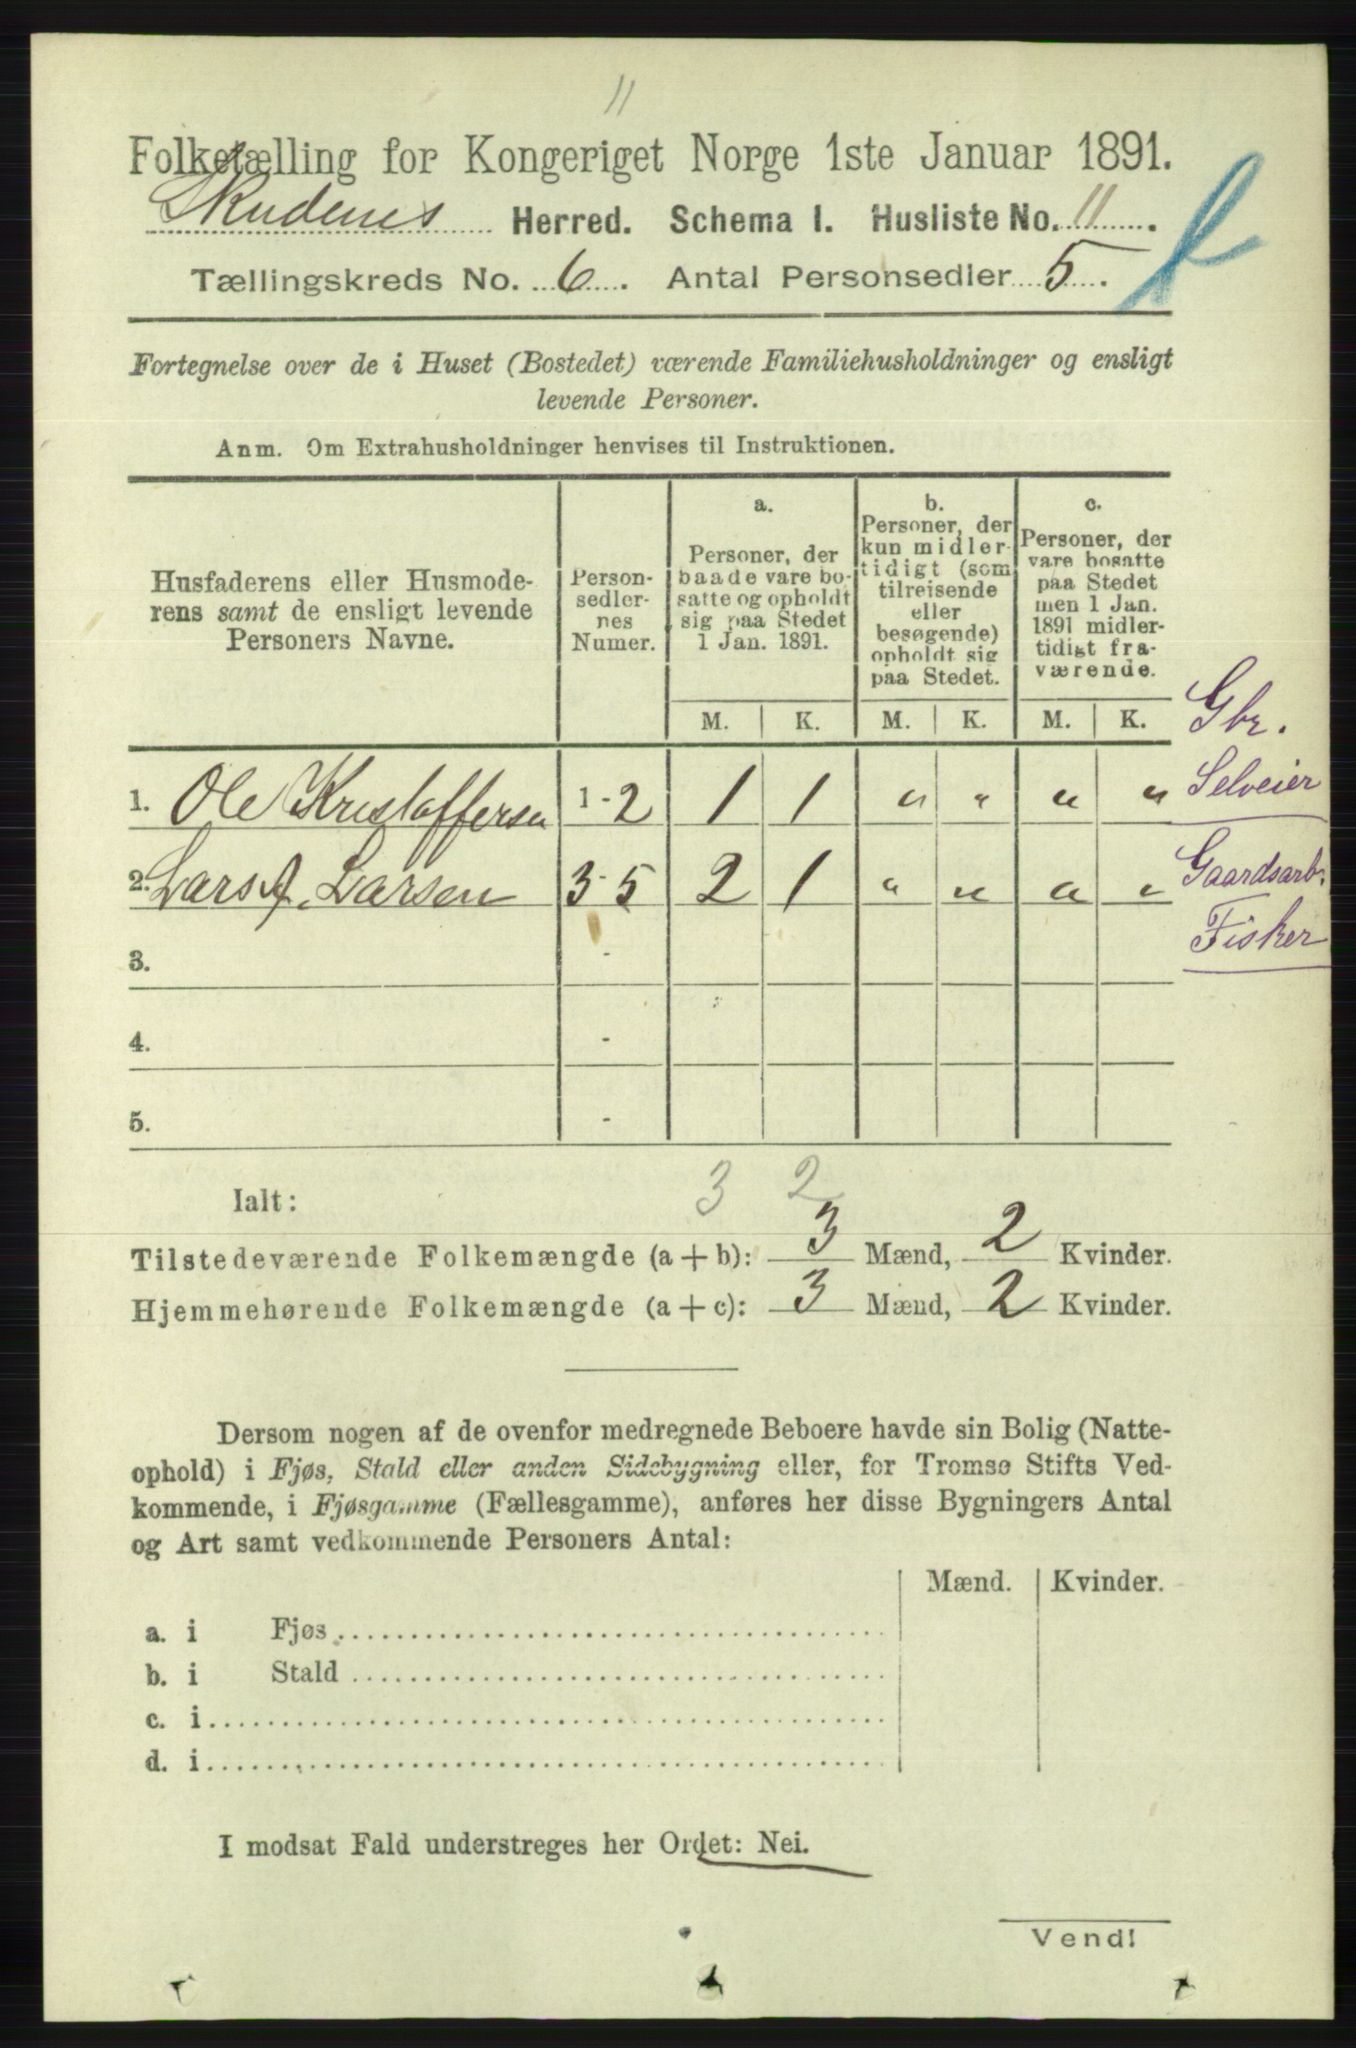 11
Folketælling for Kongeriget Norge 1ste Januar 1891.
Skudenes Herred. Schema I. Husliste No. 11.
Tællingskreds No. 6. Antal Personsedler 5.
Fortegnelse over de i Huset (Bostedet) værende Familiehusholdninger og ensligt
levende Personer.
Anm. Om Extrahusholdninger henvises til Instruktionen.
Husfaderens eller Husmode-
rens samt de ensligt levende
Personers Navne.
Person-
sedler-
nes
Numer.
a.
Personer, der
baade vare bo-
satte og opholdt
sig paa Stedet
1 Jan. 1891.
b.
Personer, der
kun midler-
tidigt (som
tilreisende
eller
besøgende)
opholdt sig
paa Stedet.
c.
Personer, der
vare bosatte
paa Stedet
men 1 Jan.
1891 midler-
tidigt fra-
værende.
M. K. M. K. M. K.
Gbr.
Selveier
1. Ole Kristoffersen 1-2 1 1 " " " "
2. Lars J. Larsen 3-5 2 1 " " " "
Gaardsarb.
Fisker
3. -
4. -
5. -
3 2
Ialt:
Tilstedeværende Folkemængde (a + b): 3 Mænd, 2 Kvinder.
Hjemmehørende Folkemængde (a + c): 3 Mænd, 2 Kvinder.
Dersom nogen af de ovenfor medregnede Beboere havde sin Bolig (Natte-
ophold) i Fjøs, Stald eller anden Sidebygning eller, for Tromsø Stifts Ved-
kommende, i Fjøsgamme (Fællesgamme), anføres her disse Bygningers Antal
og Art samt vedkommende Personers Antal:
Mænd. Kvinder.
a. i Fjøs
b. i Stald
c. i
d. i
I modsat Fald understreges her Ordet: Nei.
Vend!